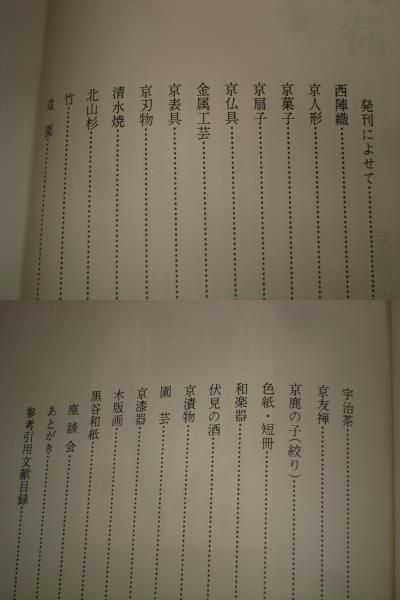 発刊によせて
西陣織
京人形
京菓子
京扇子
京仏具
金属工芸
京表具
京刃物
清水焼
北山杉
竹
造園
宇治茶
京友禅
京鹿の子(絞り)
色紙・短冊
和楽器
伏見の酒
京漬物
園芸
京漆器
木版画
黒谷和紙
座談会
あとがき
参考引用文献目録